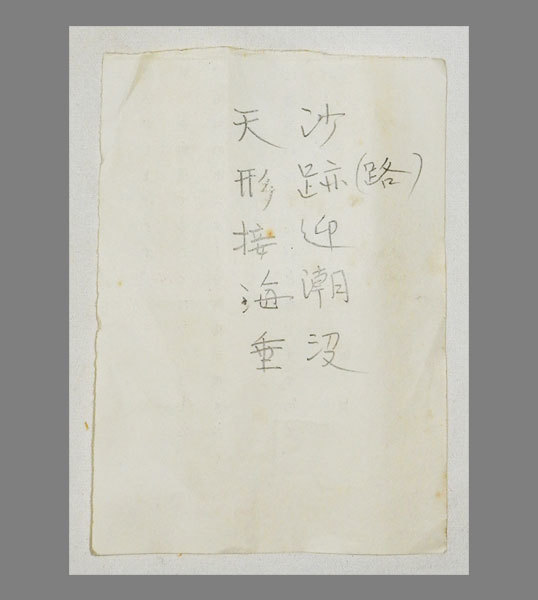 沙跡(路)迎潮没
天形接海垂